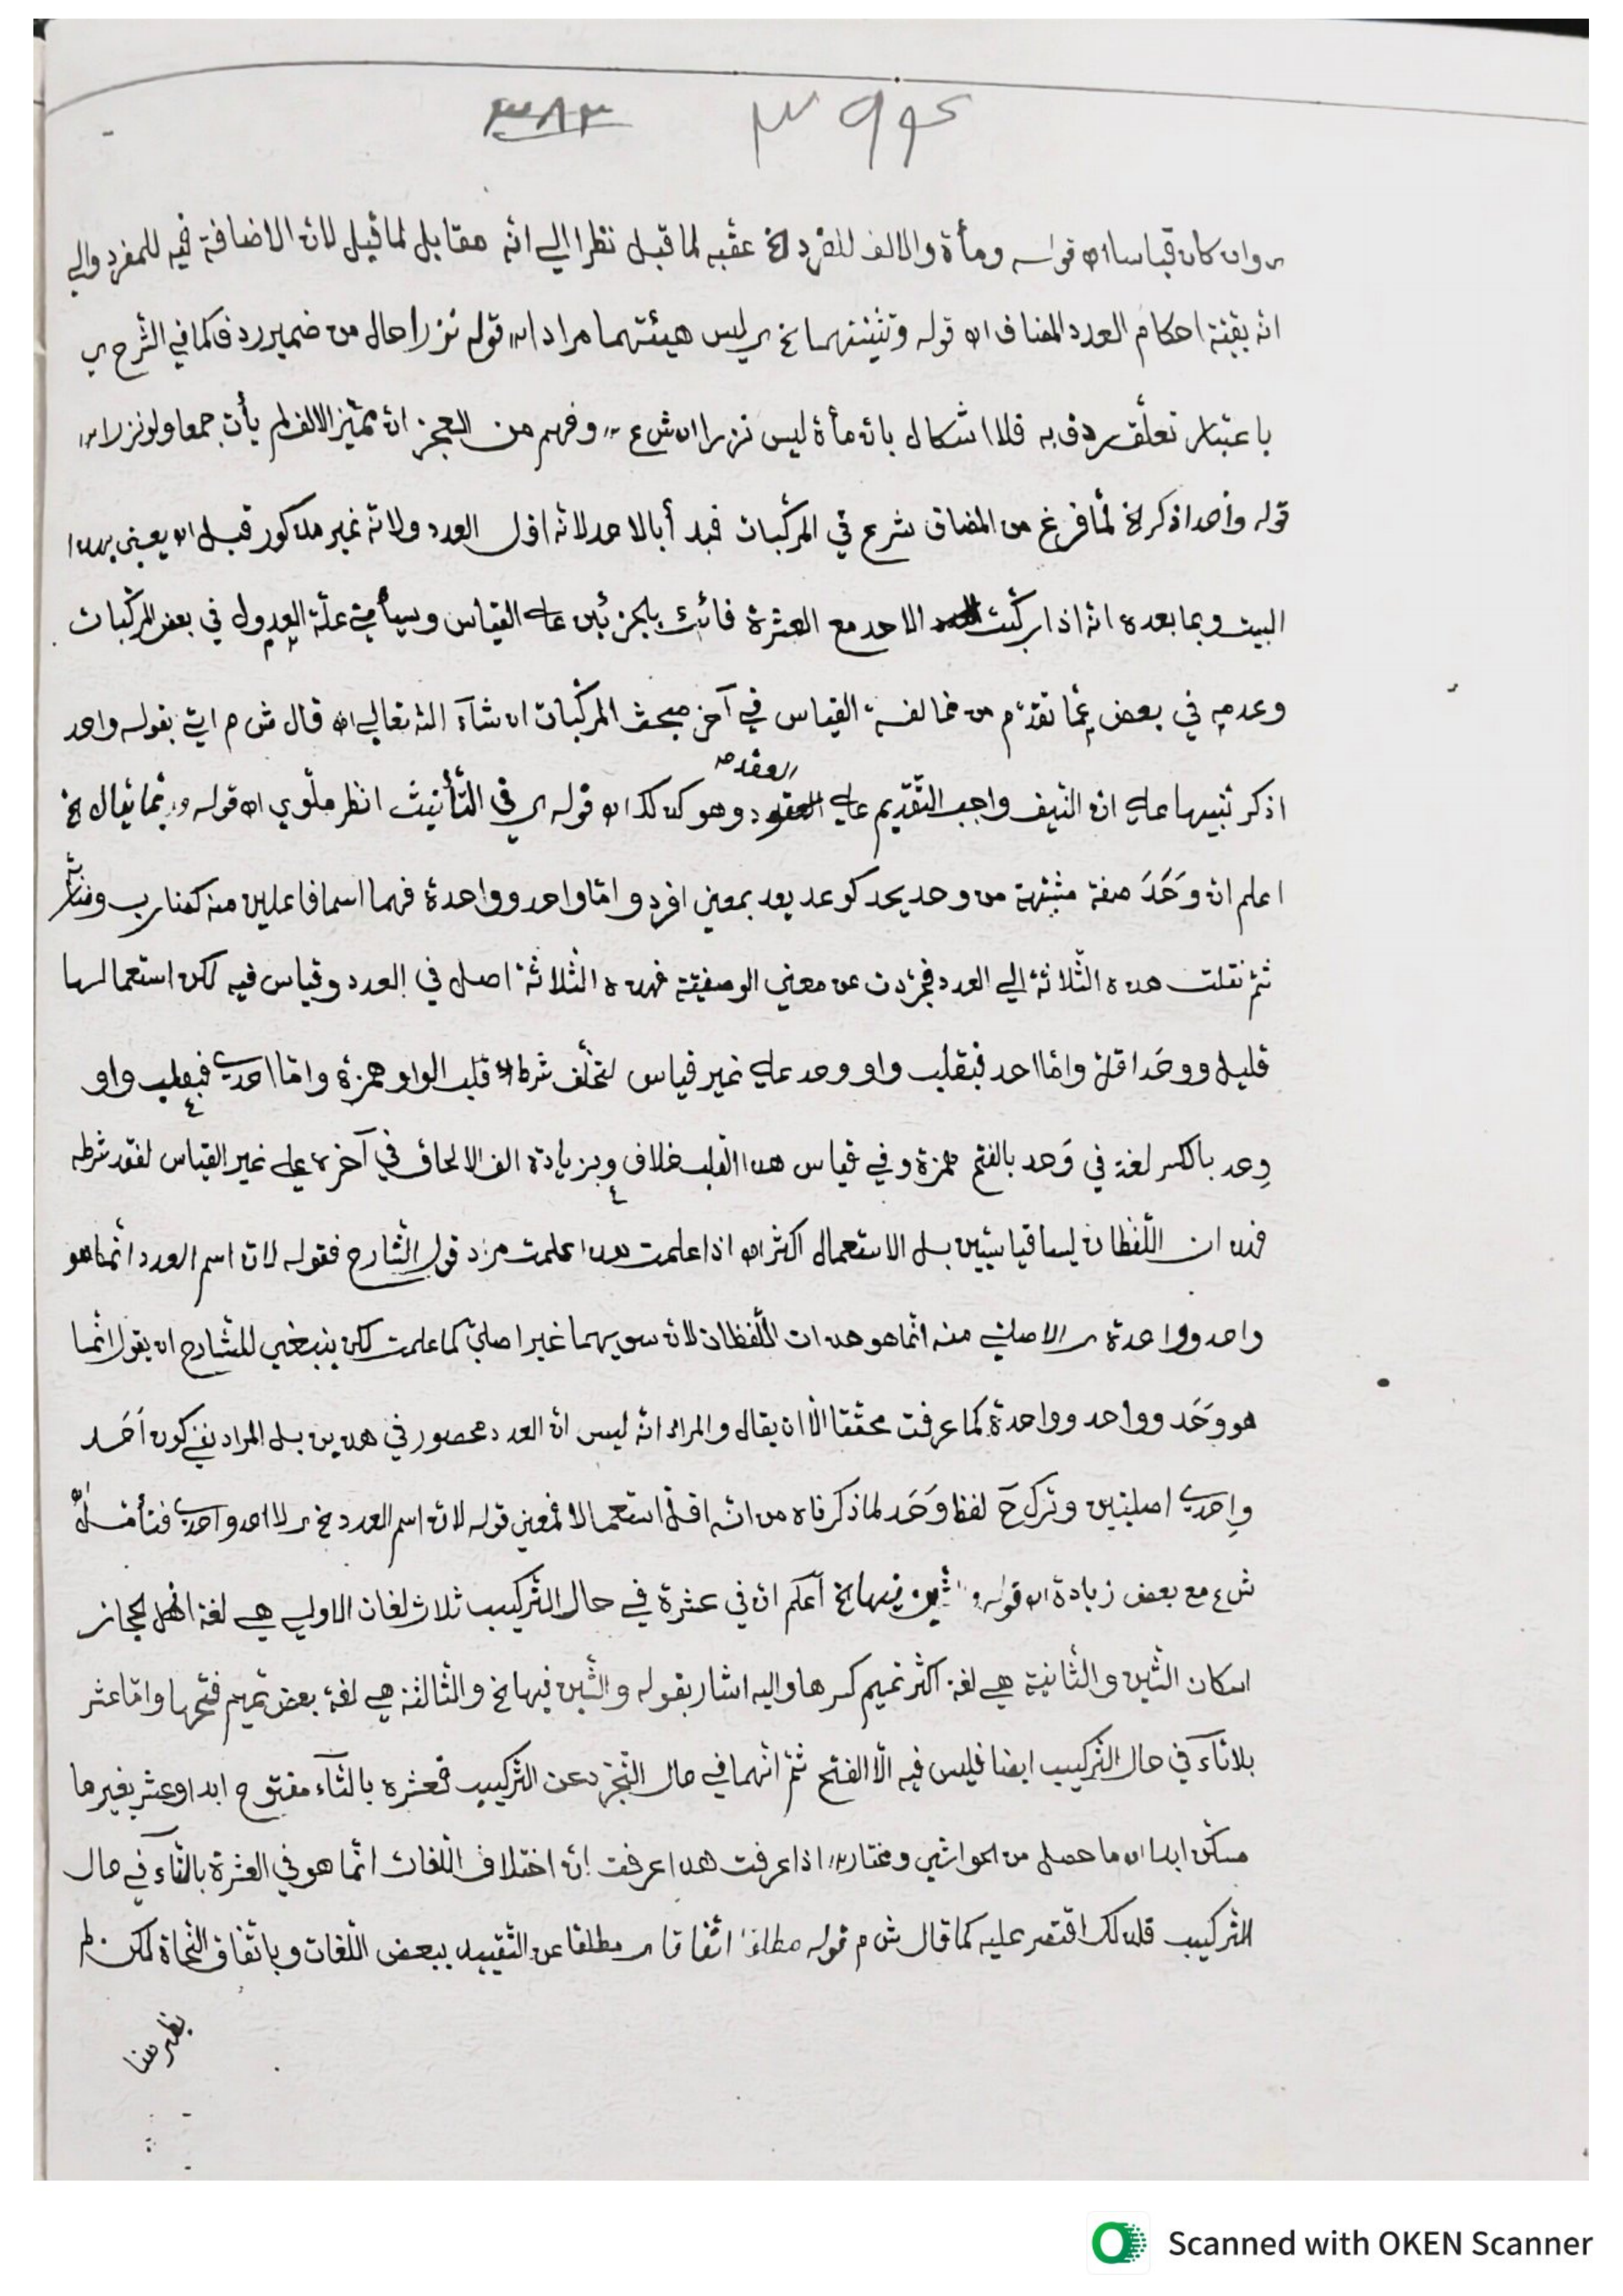 ٣٨٣ ٣٩٤
وان كان قياسا اه قوله ومأة والالف للفرد الخ عقبه لما قبل نظرا الي انه مقابل لما قيل لان الاضافة فيه للمفرد والي
انه بقية احكام العدد المضاف اه قوله وتثنيتهما الخ ي ليس هيئتهما مرادا اه قوله نزرا حال من ضمير ردف كما في الشرح ي
باعتبار تعلق ردف به فلا اشكال بان مأة ليس نزرا اه ش ع وفهم من العجز ان مميز الالف لم يأت جمعا ولو نزرا اه
قوله وأحد اذكر الخ لما فرغ من المضاف شرع في المركبات فبدأ بالاحد لانه اول العدد ولانه غير مذكور قبل اه يعني بهذا
البيت وبما بعده انه اذا ركبت الاحد مع العشرة فائت بالجزئين علي القياس وسيأتي علة العدول في بعض المركبات
وعدمه في بعض عما تقدم من مخالفة القياس في آخر مبحث المركبات ان شآء الله تعالي اه قال ش م اتي بقوله واحد
اذكر تنبيها علي ان النيف واجب التقديم علي العقد وهو كذلك اه قوله ي في التأنيث انظر ملوي اه قوله وربما يقال الخ
اعلم ان وَحَدَ صفة مشبهة من وحد يحد كوعد يعد بمعني افرد واما واحد وواحدة فهما اسما فاعلين منه كضارب
ثم نقلت هذه الثلاثة الي العدد فجردت عن معني الوصفية فهذه الثلاثة اصل في العدد وقياس فيه لكن استعمالها
قليل ووحَد اقل واما احد فبقلب واو وحد علي غير قياس لتخلف شرط قلب الواو همزة واما احدي فبقلب واو
وِحد بالكسر لغة في وَحد بالفتح همزة وفي قياس هذا القلب خلاف وبزيادة الف الالحاق في آخره علي غير القياس لفقد شرطه
فهذان اللفظان ليسا قياسيين بل الاستعمال اكثر اه اذا علمت هذا علمت مراد قول الشارح فقوله لان اسم العدد انما هو
واحد وواحدة ي الاصلي منه انما هو هذان اللفظان لان سويهما غير اصلي كما علمت لكن ينبغي للشارح ان يقول انما
هو وَحَد وواحد وواحدة كما عرفت محققا الا ان يقال والمراد انه ليس ان العدد محصور في هذين بل المراد نفي كون اَحَد
واِحدي اصليتين وترك ح لفظ وَحَد لما ذكرناه من انه اقل استعمالا فمعني قوله لان اسم العدد الخ ي لا احد واحدي فتأمل
ش ع مع بعض زيادة اه قوله والشين فيها الخ أعلم ان في عشرة في حال التركيب ثلاث لغات الاولي هي لغة اهل الحجاز
اسكان الشين والثانية هي لغة اكثر تميم كسرها واليه اشار بقوله والشين فيها الخ والثالثة هي لغة بعض تميم فتحها واما عشر
بلا تآء في حال التركيب ايضا فليس فيه الا الفتح ثم انهما في حال التجرد عن التركيب فعشرة بالتآء مفتوح ابدا وعشر بغيرها
مسكن ابدا اه ما حصل من الحواشي ومختار اه اذا عرفت هذا عرفت ان اختلاف اللغات انما هو في العشرة بالتآء في حال
التركيب فلذلك اقتصر عليه كما قال ش م قوله مطلقا اتفاقا ي مطلقا عن التقييد ببعض اللغات وباتفاق النحاة لكن لم
يظهر هنا
Scanned with OKEN Scanner